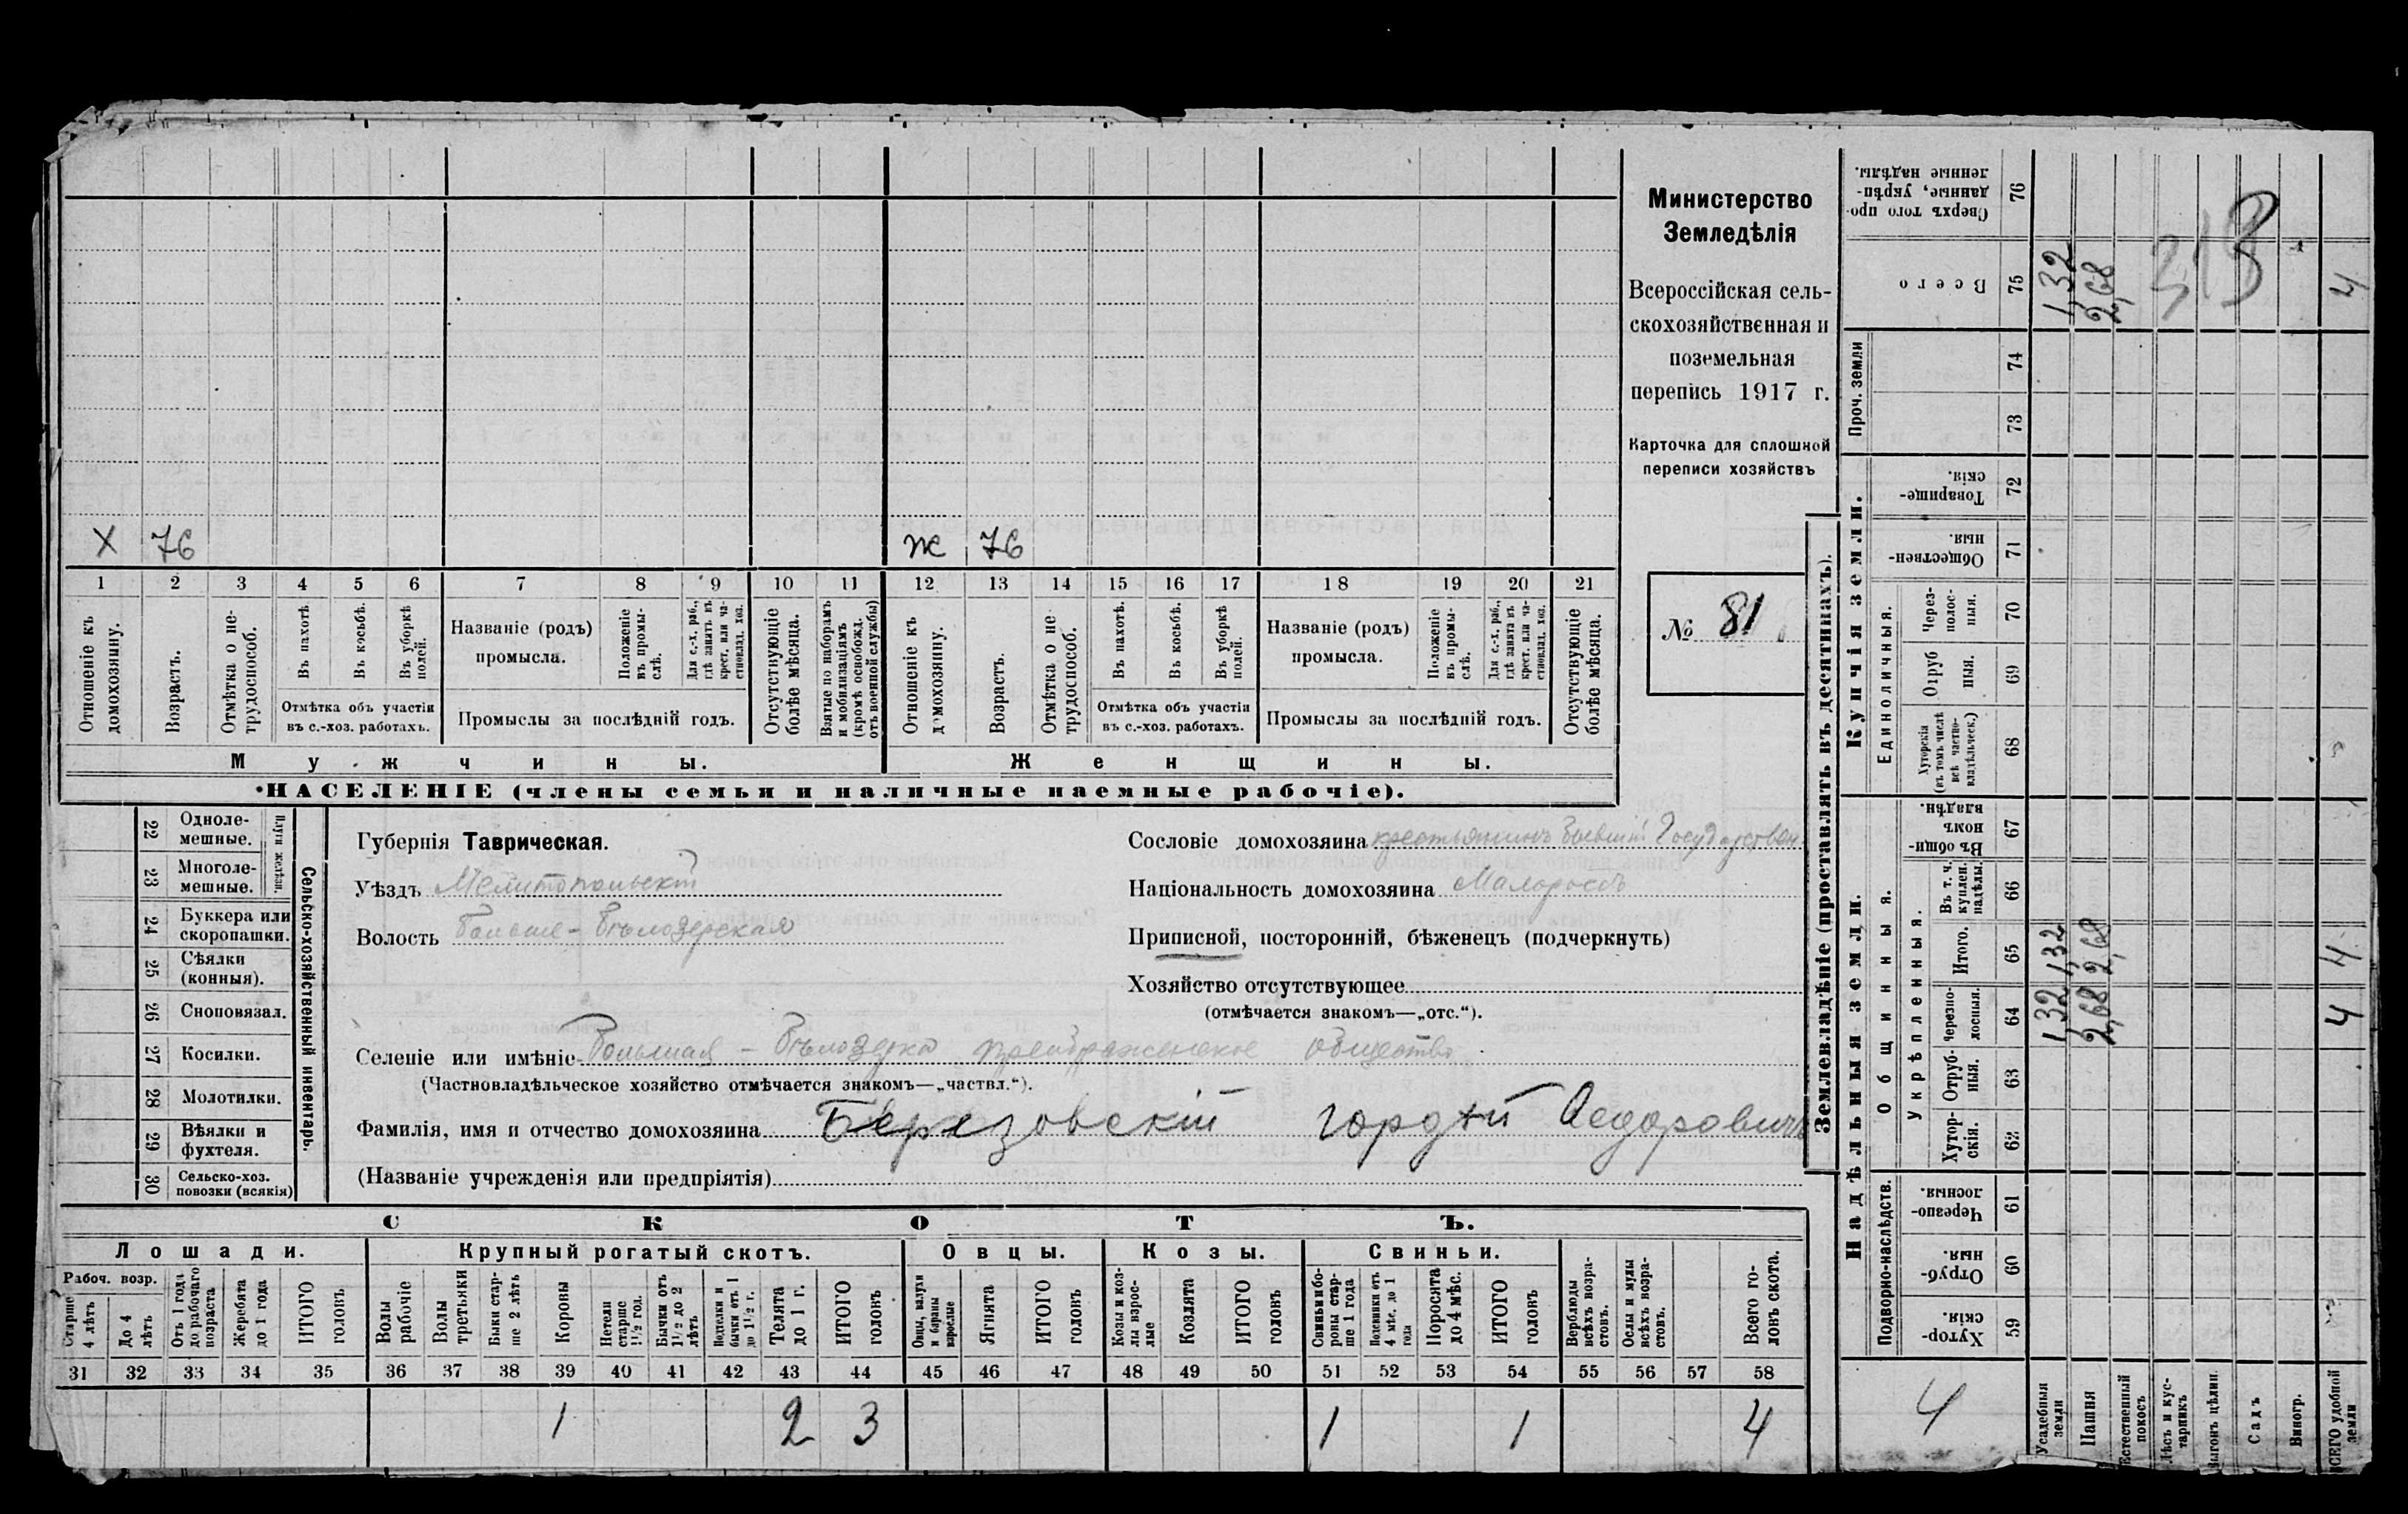 Министерство
Земледѣлія
Всероссійская сель-
скохозяйственная и
поземельная
перепись 1917 г.
Карточка для сплошной
переписи хозяйствъ
№ 81
X 76 ж 76
1 2 3 4 5 6 7 8 9 10 11 12 13 14 15 16 17 18 19 20 21
Отношеніе къ домохозяину.
Возрастъ.
Отмѣтка о не-трудоспособ.
Въ пахотѣ.
Въ косьбѣ.
Въ уборкѣ полей.
Отмѣтка объ участіи
въ с.-хоз. работахъ.
Названіе (родъ)
промысла.
Положеніе въ промы-слѣ.
Для с.-х. раб., гдѣ занятъ въ крест. или ча-стновлад. хоз.
Промыслы за послѣдній годъ.
Отсутствующіе болѣе мѣсяца.
Взятые по наборамъ и мобилизаціямъ (кромѣ освобожд. отъ военной службы)
Отношеніе къ домохозяину.
Возрастъ.
Отмѣтка о не трудоспособ.
Въ пахотѣ.
Въ косьбѣ.
Въ уборкѣ полей.
Отмѣтка объ участіи
въ с.-хоз. работахъ.
Названіе (родъ)
промысла.
Положеніе въ промы-слѣ.
Для с.-х. раб., гдѣ занята въ крест. или ча-стновлад. хоз.
Промыслы за послѣдній годъ.
Отсутствующіе болѣе мѣсяца.
Мужчины. Женщины.
НАСЕЛЕНІЕ (члены семьи и наличные наемные рабочіе).
Сельско-хозяйственный инвентарь.
Плуги желѣзн.
22 Одноле-мешные.
23 Многоле-мешные.
24 Буккера или скоропашки.
25 Сѣялки (конныя).
26 Сноповязал.
27 Косилки.
28 Молотилки.
29 Вѣялки и фухтеля.
30 Сельско-хоз. повозки (всякія)
Губернія Таврическая.
Уѣздъ Мелитопольскій
Волость Больше-Бѣлозерская
Сословіе домохозяина крестьянинъ бывшій Государствен.
Національность домохозяина Малороссъ
Приписной, посторонній, бѣженецъ (подчеркнуть)
Хозяйство отсутствующее
(отмѣчается знакомъ—„отс.“).
Селеніе или имѣніе Большая - Бѣлозерка преображенское общество
(Частновладѣльческое хозяйство отмѣчается знакомъ—„частвл.“).
Фамилія, имя и отчество домохозяина Березовскій Гордѣй Федоровичъ
(Названіе учрежденія или предпріятія)
СКОТЪ.
Лошади. Крупный рогатый скотъ. Овцы. Козы. Свиньи.
Рабоч. возр.
Старше 4 лѣтъ
До 4 лѣтъ
Отъ 1 года до рабочаго возраста
Жеребята до 1 года
ИТОГО головъ
Волы рабочіе
Волы третьяки
Быки стар-ше 2 лѣтъ
Коровы
Нетели старше 1½ год.
Бычки отъ 1½ до 2 лѣтъ
Подтелки и бычки отъ 1 до 1½ г.
Телята до 1 г.
ИТОГО головъ
Овцы, валухи и бараны взрослые
Ягнята
ИТОГО головъ
Козы и коз-лы взрос-лые
Козлята
ИТОГО головъ
Свиньи и бо-ровы стар-ше 1 года
Подсвинки отъ 4 мѣс. до 1 года
Поросята до 4 мѣс.
ИТОГО головъ
Верблюды всѣхъ возра-стовъ.
Ослы и мулы всѣхъ возра-стовъ.
Всего го-ловъ скота.
31 32 33 34 35 36 37 38 39 40 41 42 43 44 45 46 47 48 49 50 51 52 53 54 55 56 57 58
1 2 3 1 1 4
Землевладѣніе (проставлять въ десятинахъ).
Купчія земли.
Надѣльныя земли.
Сверхъ того про-данные, укрѣп-ленные надѣлы. 76
Всего 75 1,32 2,68 4
318
Проч. земли 74
73
Товарище-скія. 72
Обществен-ныя. 71
Единоличныя.
Через-полос-ныя. 70
Отруб ныя. 69
Хуторскія (въ томъ числѣ всѣ частно-владѣльческ.) 68
Общинныя.
Въ общин номъ владѣн. 67
Укрѣпленныя.
Въ т. ч. куплен. надѣлы. 66
Итого. 65 1,32 2,68 4
Черезпо-лосныя. 64 1,32 2,68 4
Отруб-ныя. 63
Хутор-скія. 62
Подворно-наслѣдств.
Черезпо-лосныя. 61
Отруб-ныя. 60
Хутор-скія. 59
4
Усадебныя земли
Пашня
Естественный покосъ
Лѣсъ и кус-тарникъ
Выгонъ цѣлин.
Садъ
Виногр.
ВСЕГО удобной земли